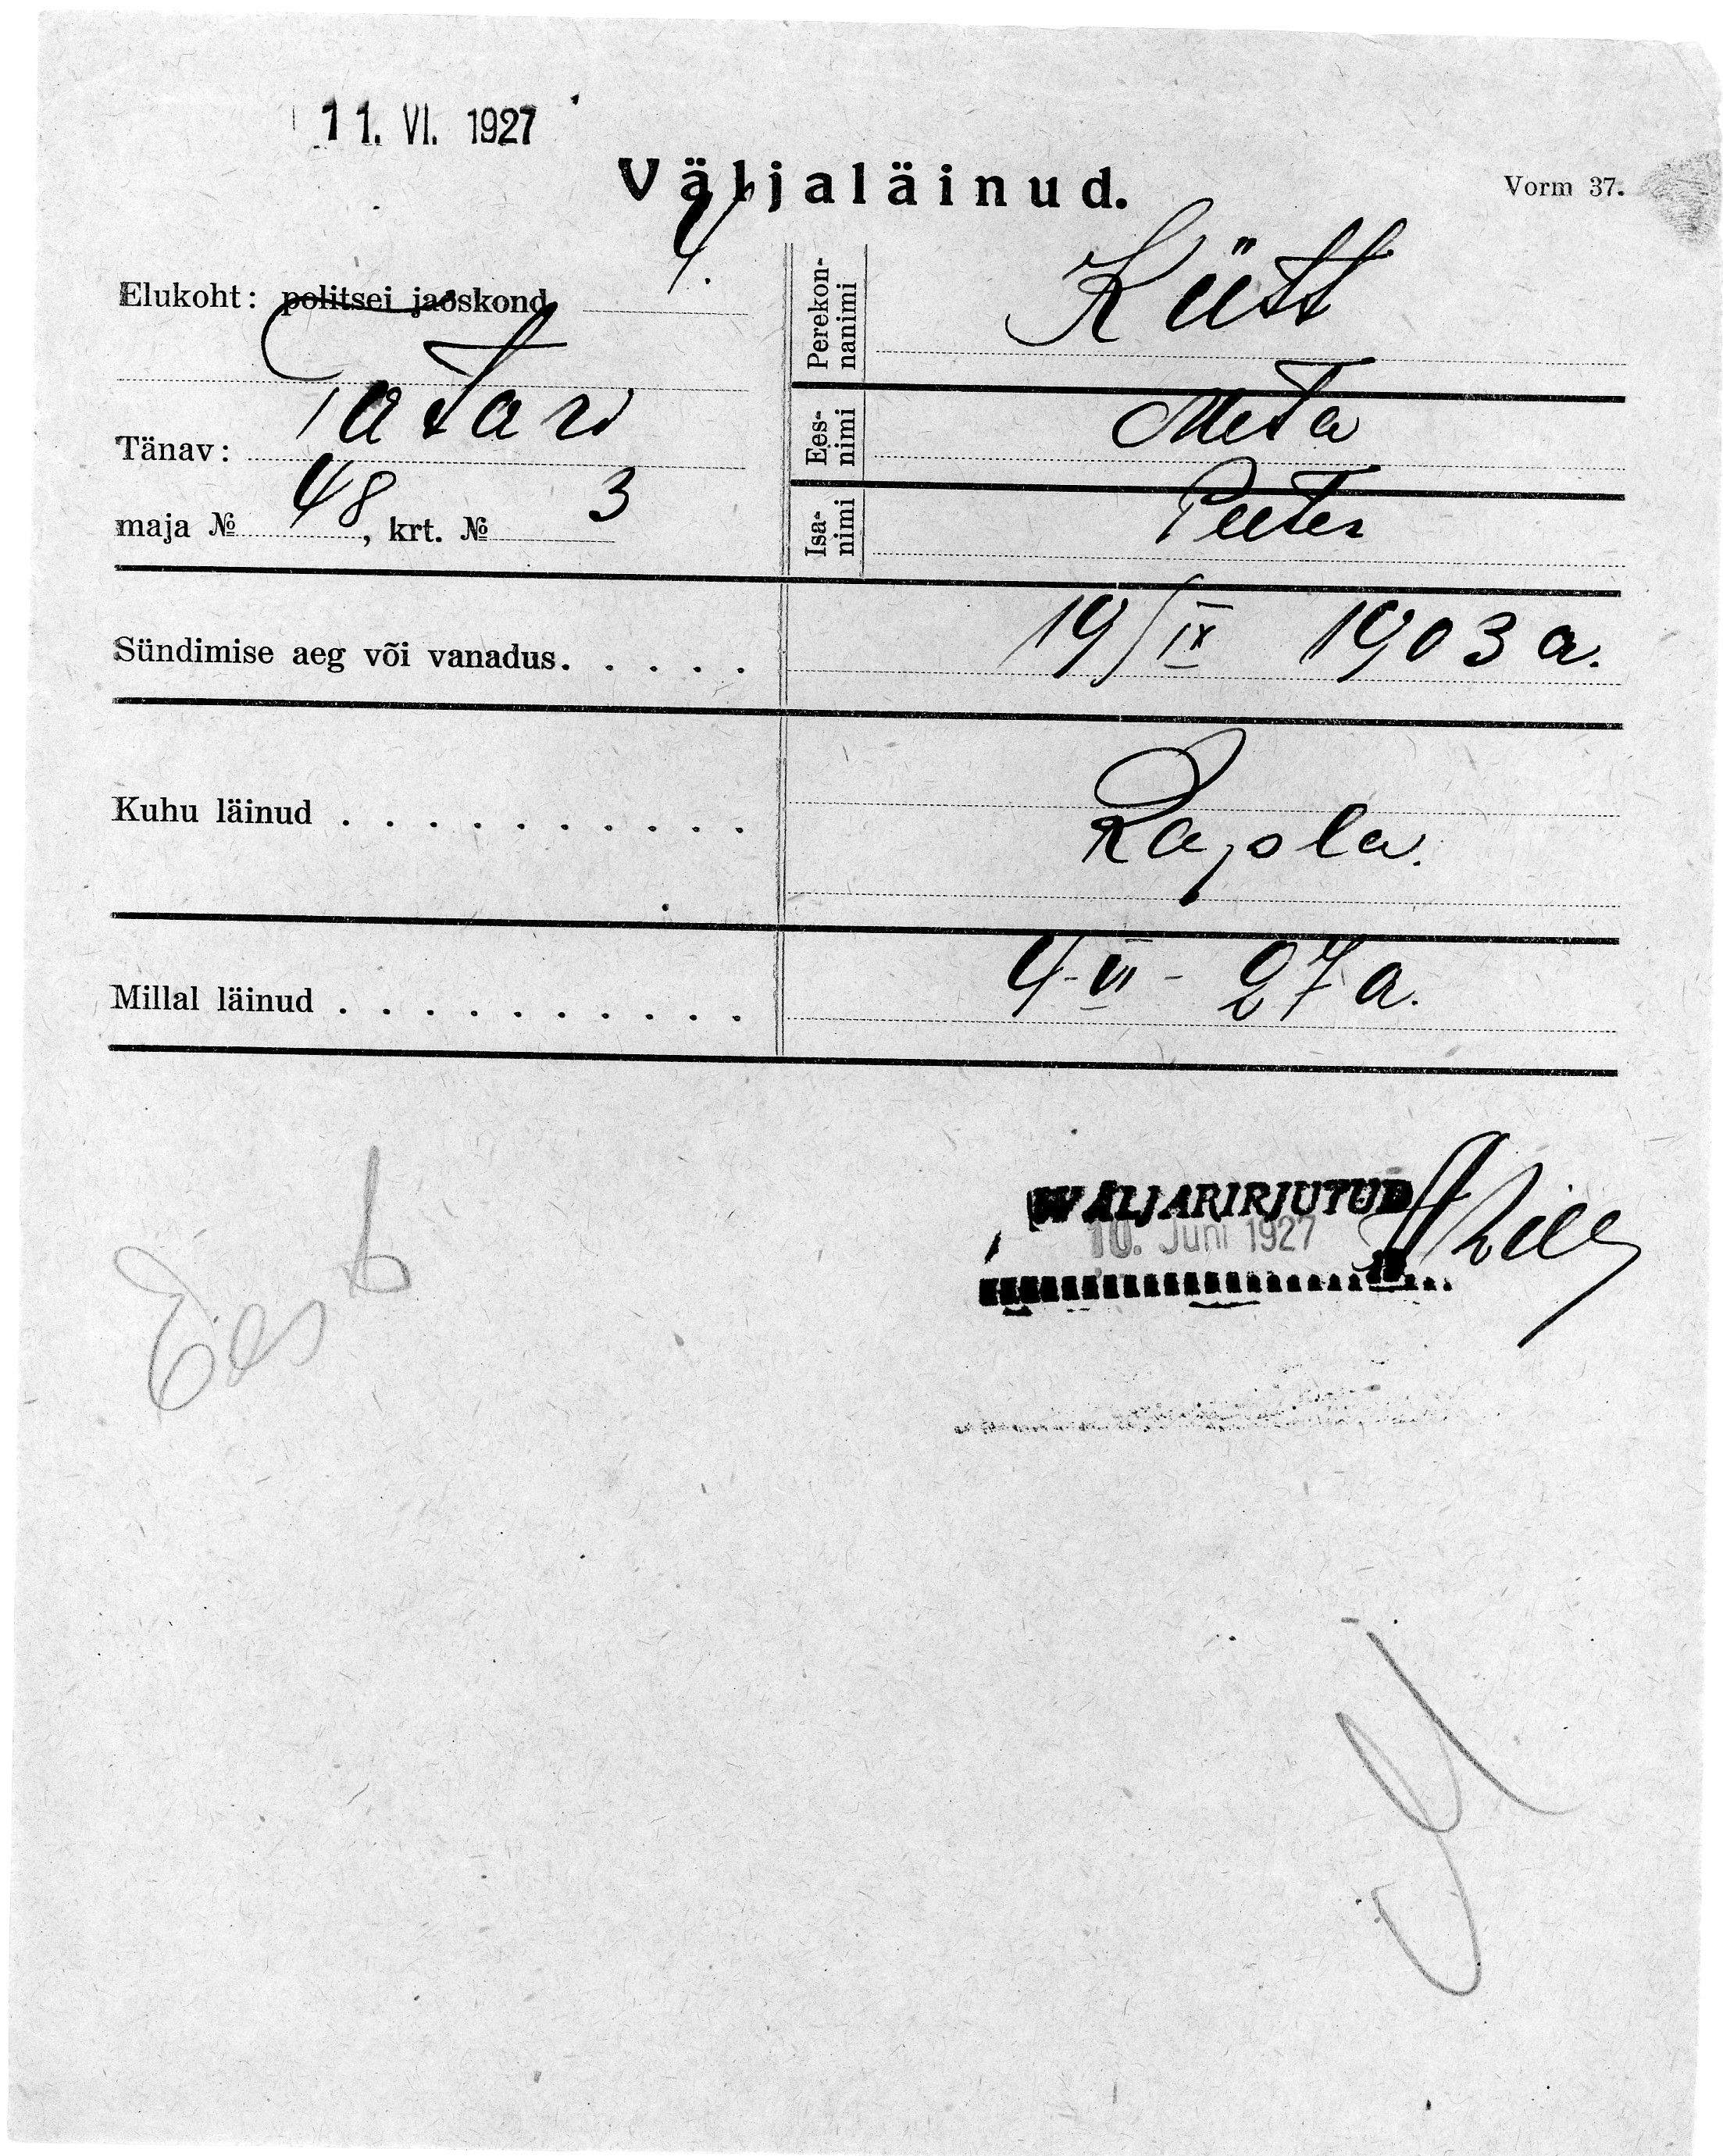 11. VI. 1927
Väljaläinud.
Vorm 37.
Elukoht: politsei jaoskond 4.
Tänav: Tatari
maja № 48, krt. № 3
Perekon-
nanimi Kütt
Ees-
nimi Meta
Isa-
nimi Peeter
Sündimise aeg või vanadus. . . . . 19/IX 1903 a.
Kuhu läinud . . . . . . . . . . Rapla.
Millal läinud . . . . . . . . . . 4-VI-27 a.
WÄLJARIRJUTUD
10. Juni 1927
Eest